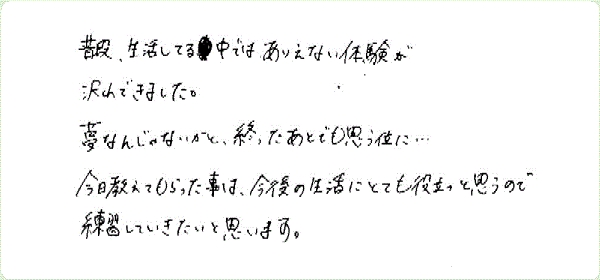 普段、生活してる中では、ありえない体験が
沢山できました。
夢なんじゃないかと、終ったあとでも思う位に…
今日教えてもらった事は、今後の生活にとても役立つと思うので
練習していきたいと思います。